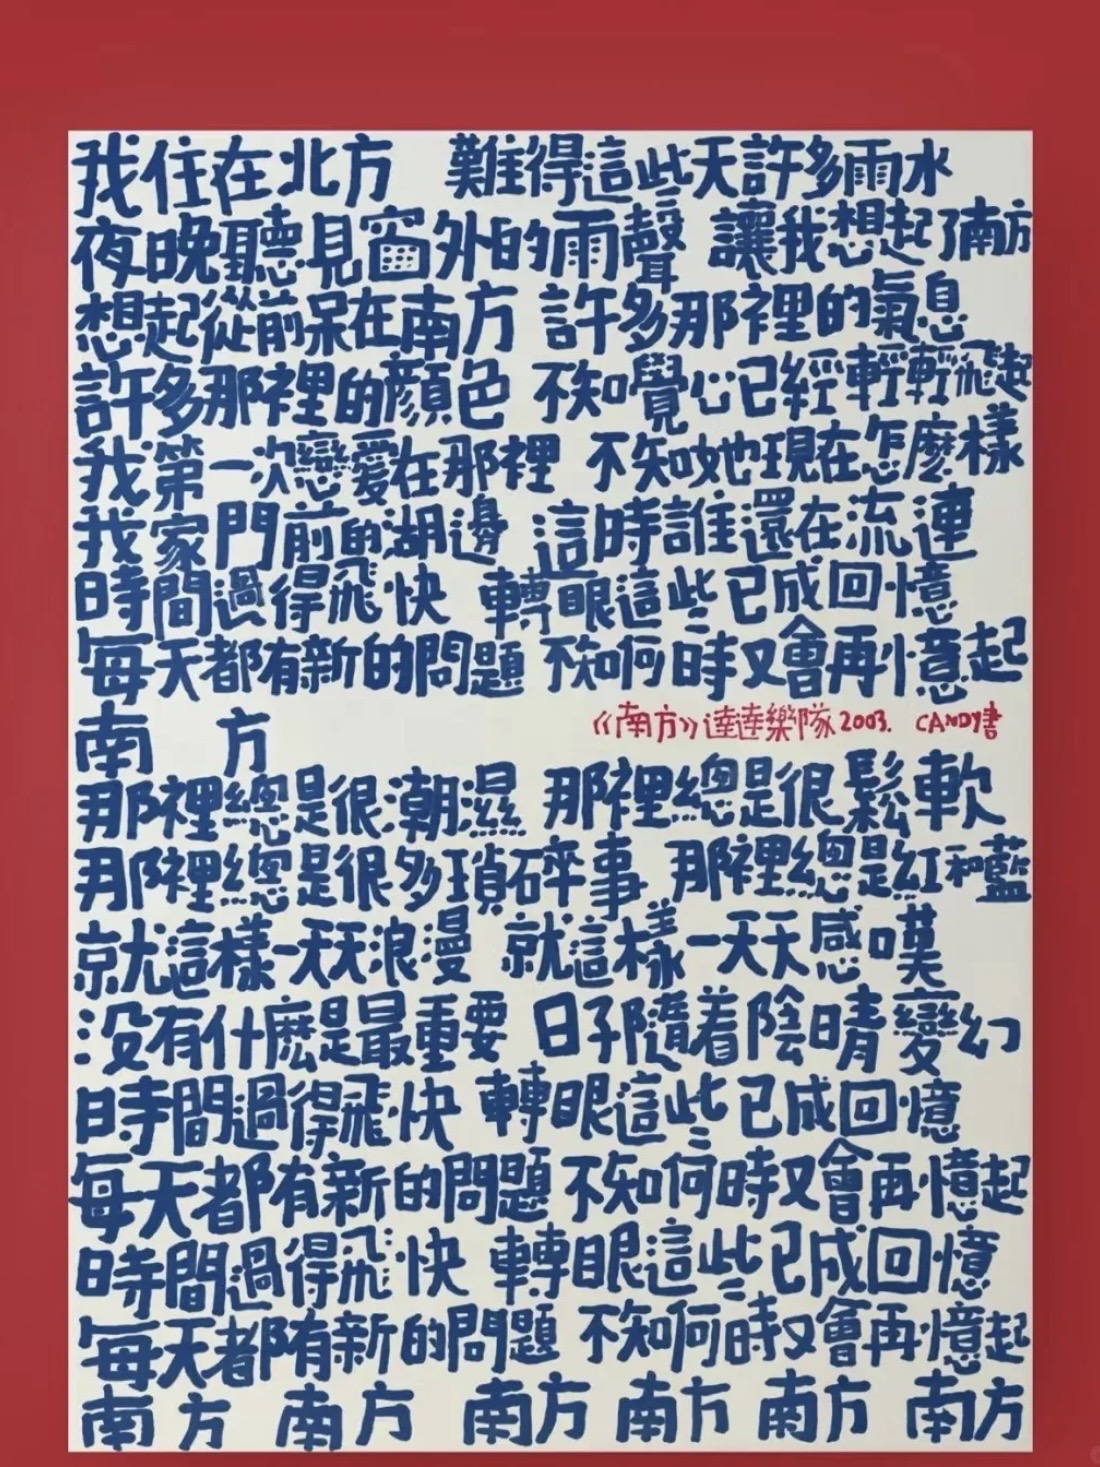 我住在北方 難得這些天許多雨水
夜晚聽見窗外的雨聲 讓我想起了南方
想起從前呆在南方 許多那裡的氣息
許多那裡的顏色 不知覺心已經輕輕飛起
我第一次戀愛在那裡 不知她現在怎麼樣
我家門前的湖邊 這時誰還在流連
時間過得飛快 轉眼這些已成回憶
每天都有新的問題 不知何時又會再憶起
南方
《南方》達達樂隊2003. CANDY書
那裡總是很潮濕 那裡總是很鬆軟
那裡總是很多瑣碎事 那裡總是紅和藍
就這樣一天天浪漫 就這樣一天天感嘆
没有什麼是最重要 日子隨着陰晴變幻
時間過得飛快 轉眼這些已成回憶
每天都有新的問題 不知何時又會再憶起
時間過得飛快 轉眼這些已成回憶
每天都有新的問題 不知何時又會再憶起
南方 南方 南方 南方 南方 南方